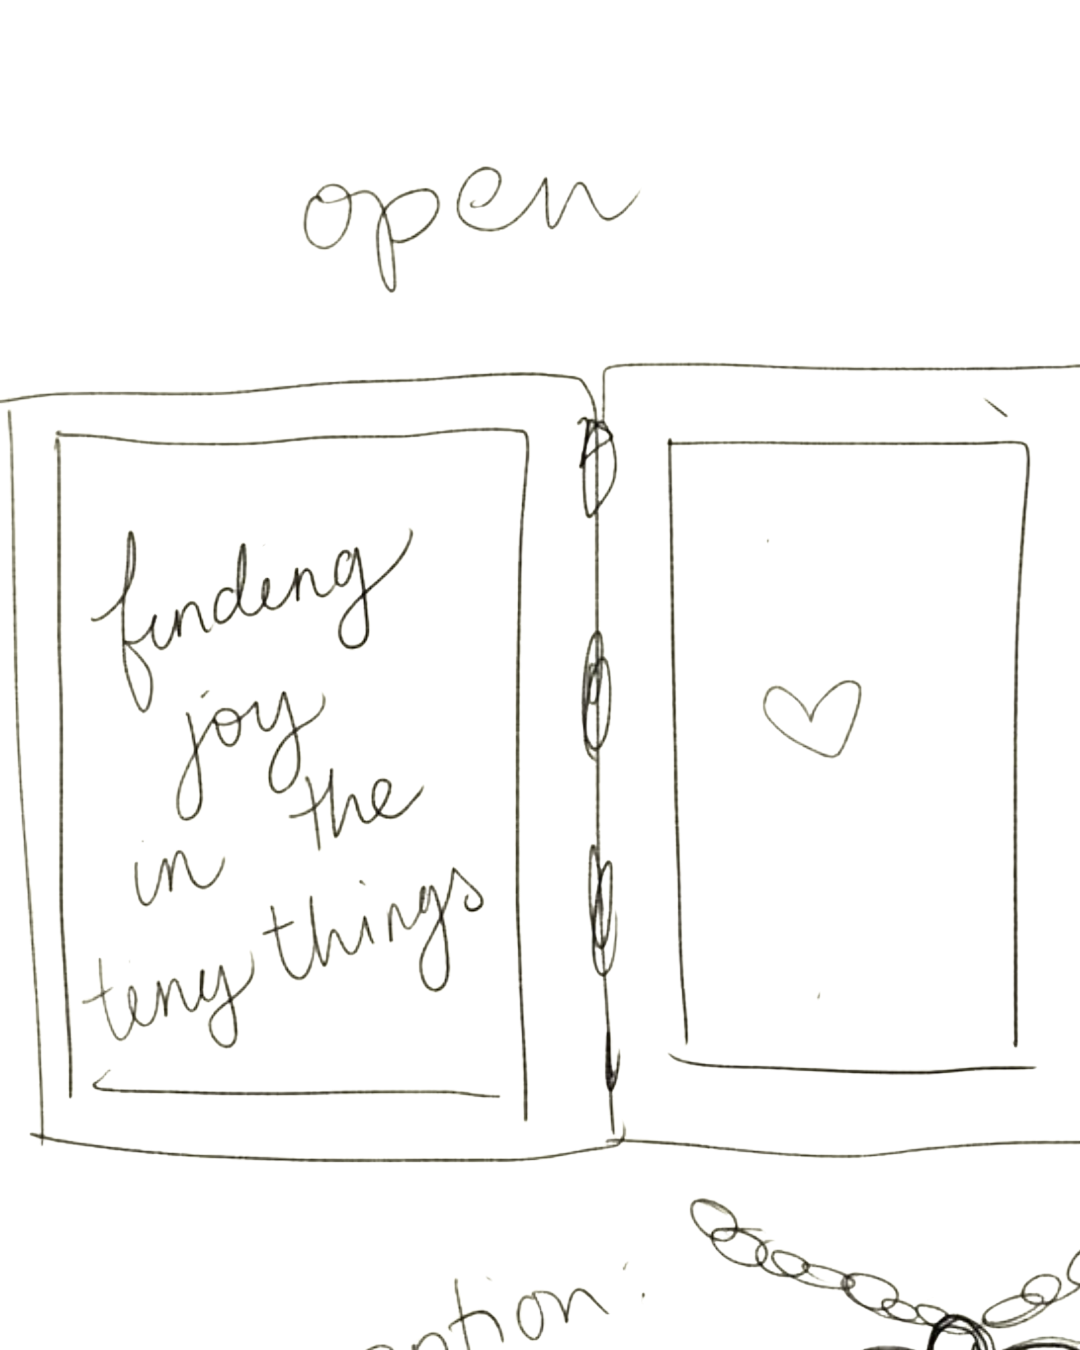 open
finding
joy
in the
teny things